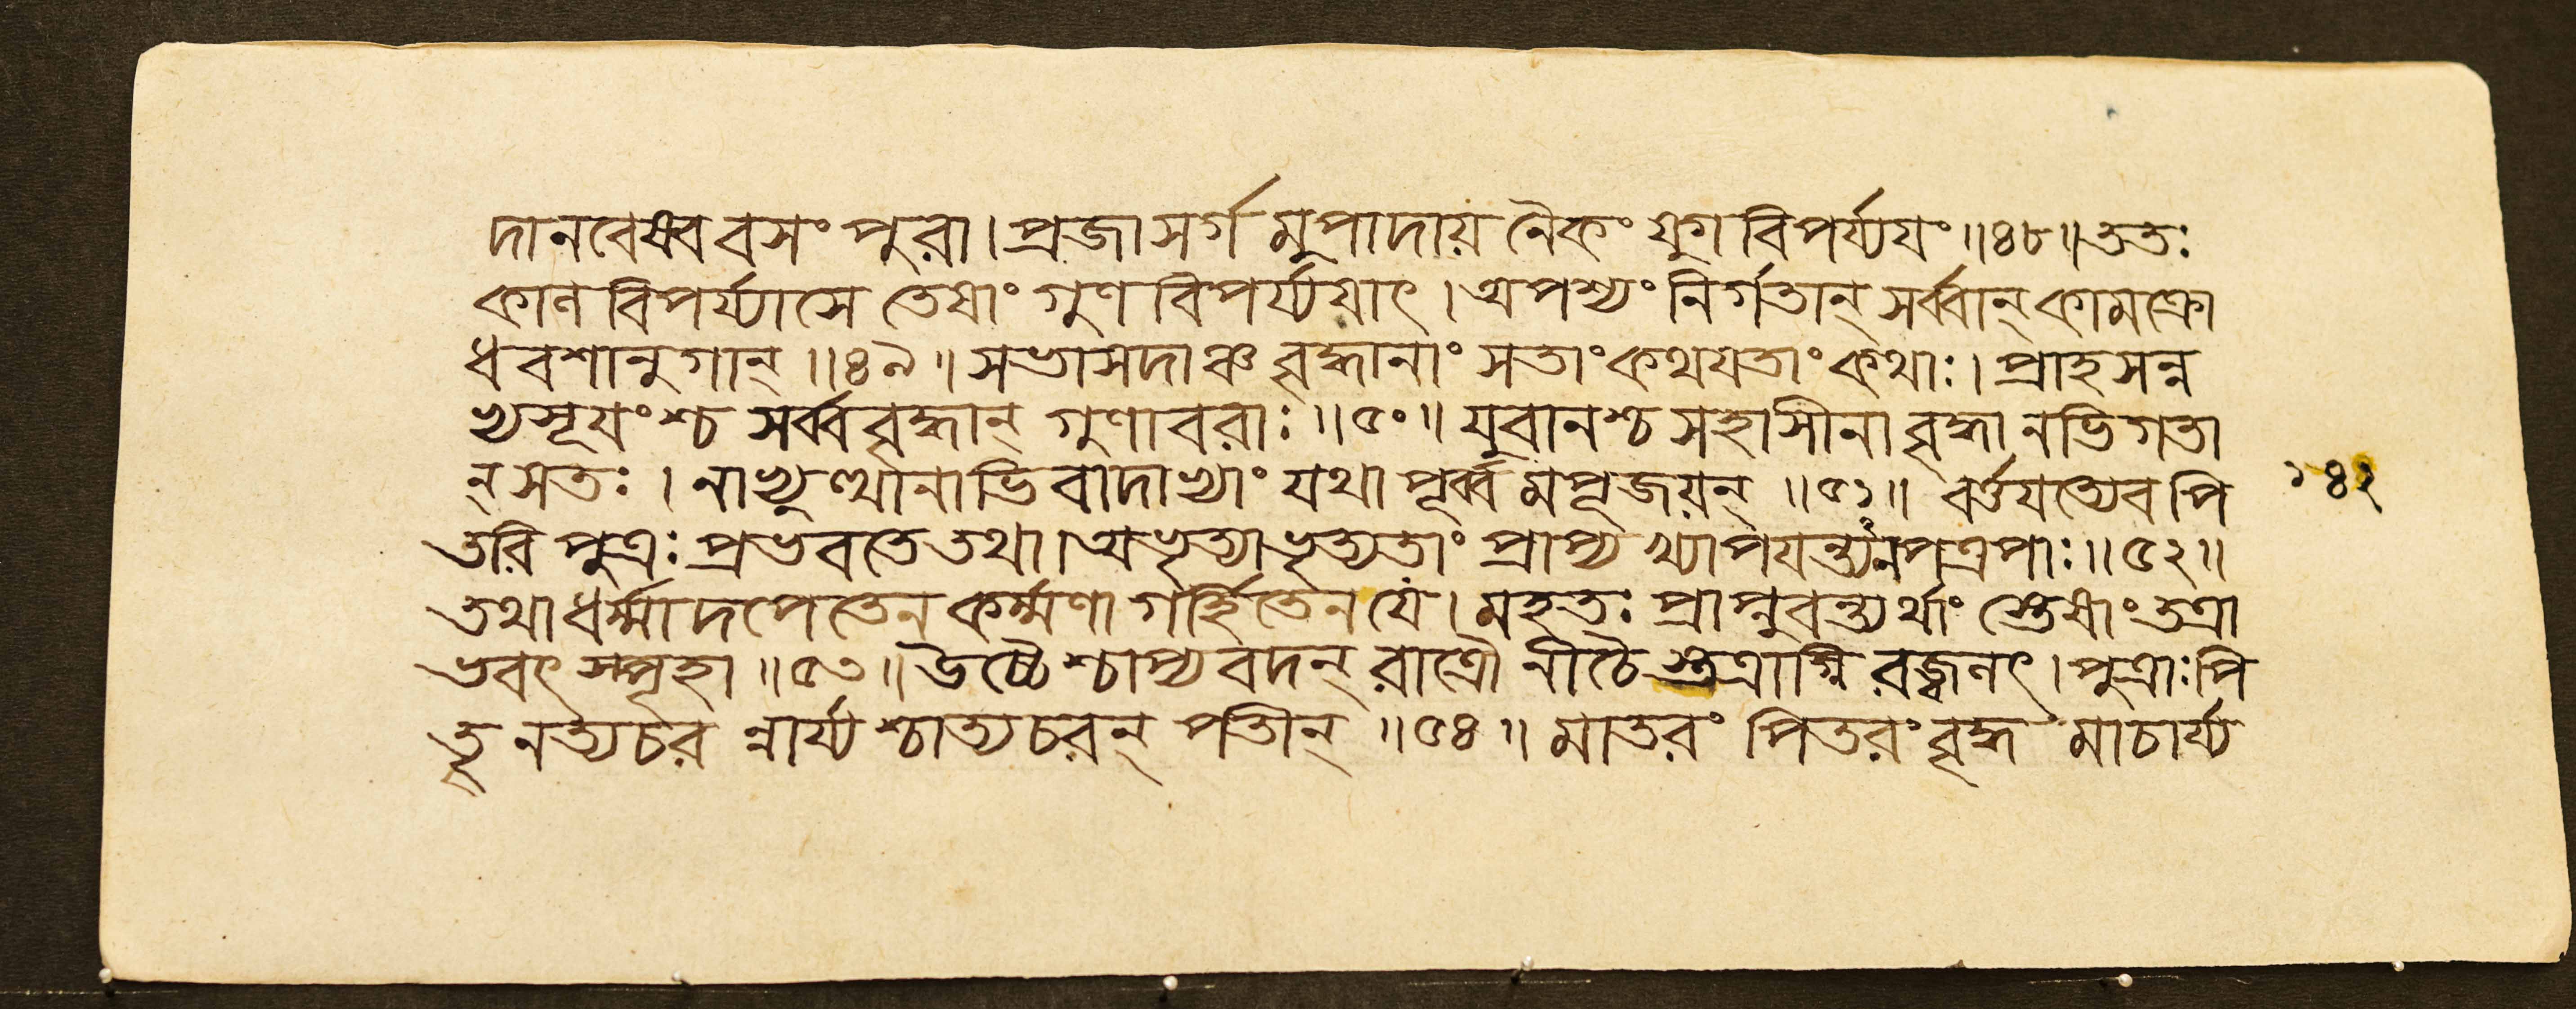 দানবেষ্বব বসং পুরা। প্রজাসর্গমুপাদায় নৈকং যুগবিপর্য্যযং ॥৪৮॥ ততঃ
কাল বিপর্য্যাসে তেষাং গুণ বিপর্য্যয়াৎ। অপশ্যং নির্গতান্ সর্ব্বান্ কামক্রো
ধবশানুগান্ ॥৪৯॥ সভাসদাঞ্চ বৃদ্ধানাং সতাং কথযতাং কথাঃ। প্রাহসন্ন
ভ্যসূযংশ্চ সর্ব্ববৃদ্ধান্ গুণাবরাঃ ॥৫০॥ যুবানশ্চ সহাসীনা বৃদ্ধানভিগতা
ন্ সতঃ। নাভ্যুত্থানাভিবাদাভ্যাং যথাপূর্ব্বমপূজয়ন্ ॥৫১॥ বর্ত্তযত্যেব পি
তরি পুত্রঃ প্রভবতে তথা। অভৃত্যাভৃত্যতাং প্রাপ্য খ্যাপযন্ত্যনপত্রপাঃ ॥৫২॥
তথা ধর্ম্মাদপেতেন কর্ম্মণা গর্হিতেন যে। মহতঃ প্রাপ্নুবন্ত্যর্থাং স্তেষাং তত্রা
ভবৎ স্পৃহা ॥৫৩॥ উচ্চৈশ্চাপ্যবদন্ রাত্রৌ নীচৈ স্তত্রাগ্নি রজ্বলৎ। পুত্রাঃ পি
তৄনত্যচর ন্নার্য্যশ্চাত্যচরন্ পতীন্ ॥৫৪॥ মাতরং পিতরং বৃদ্ধ মাচার্য্য
১৪২